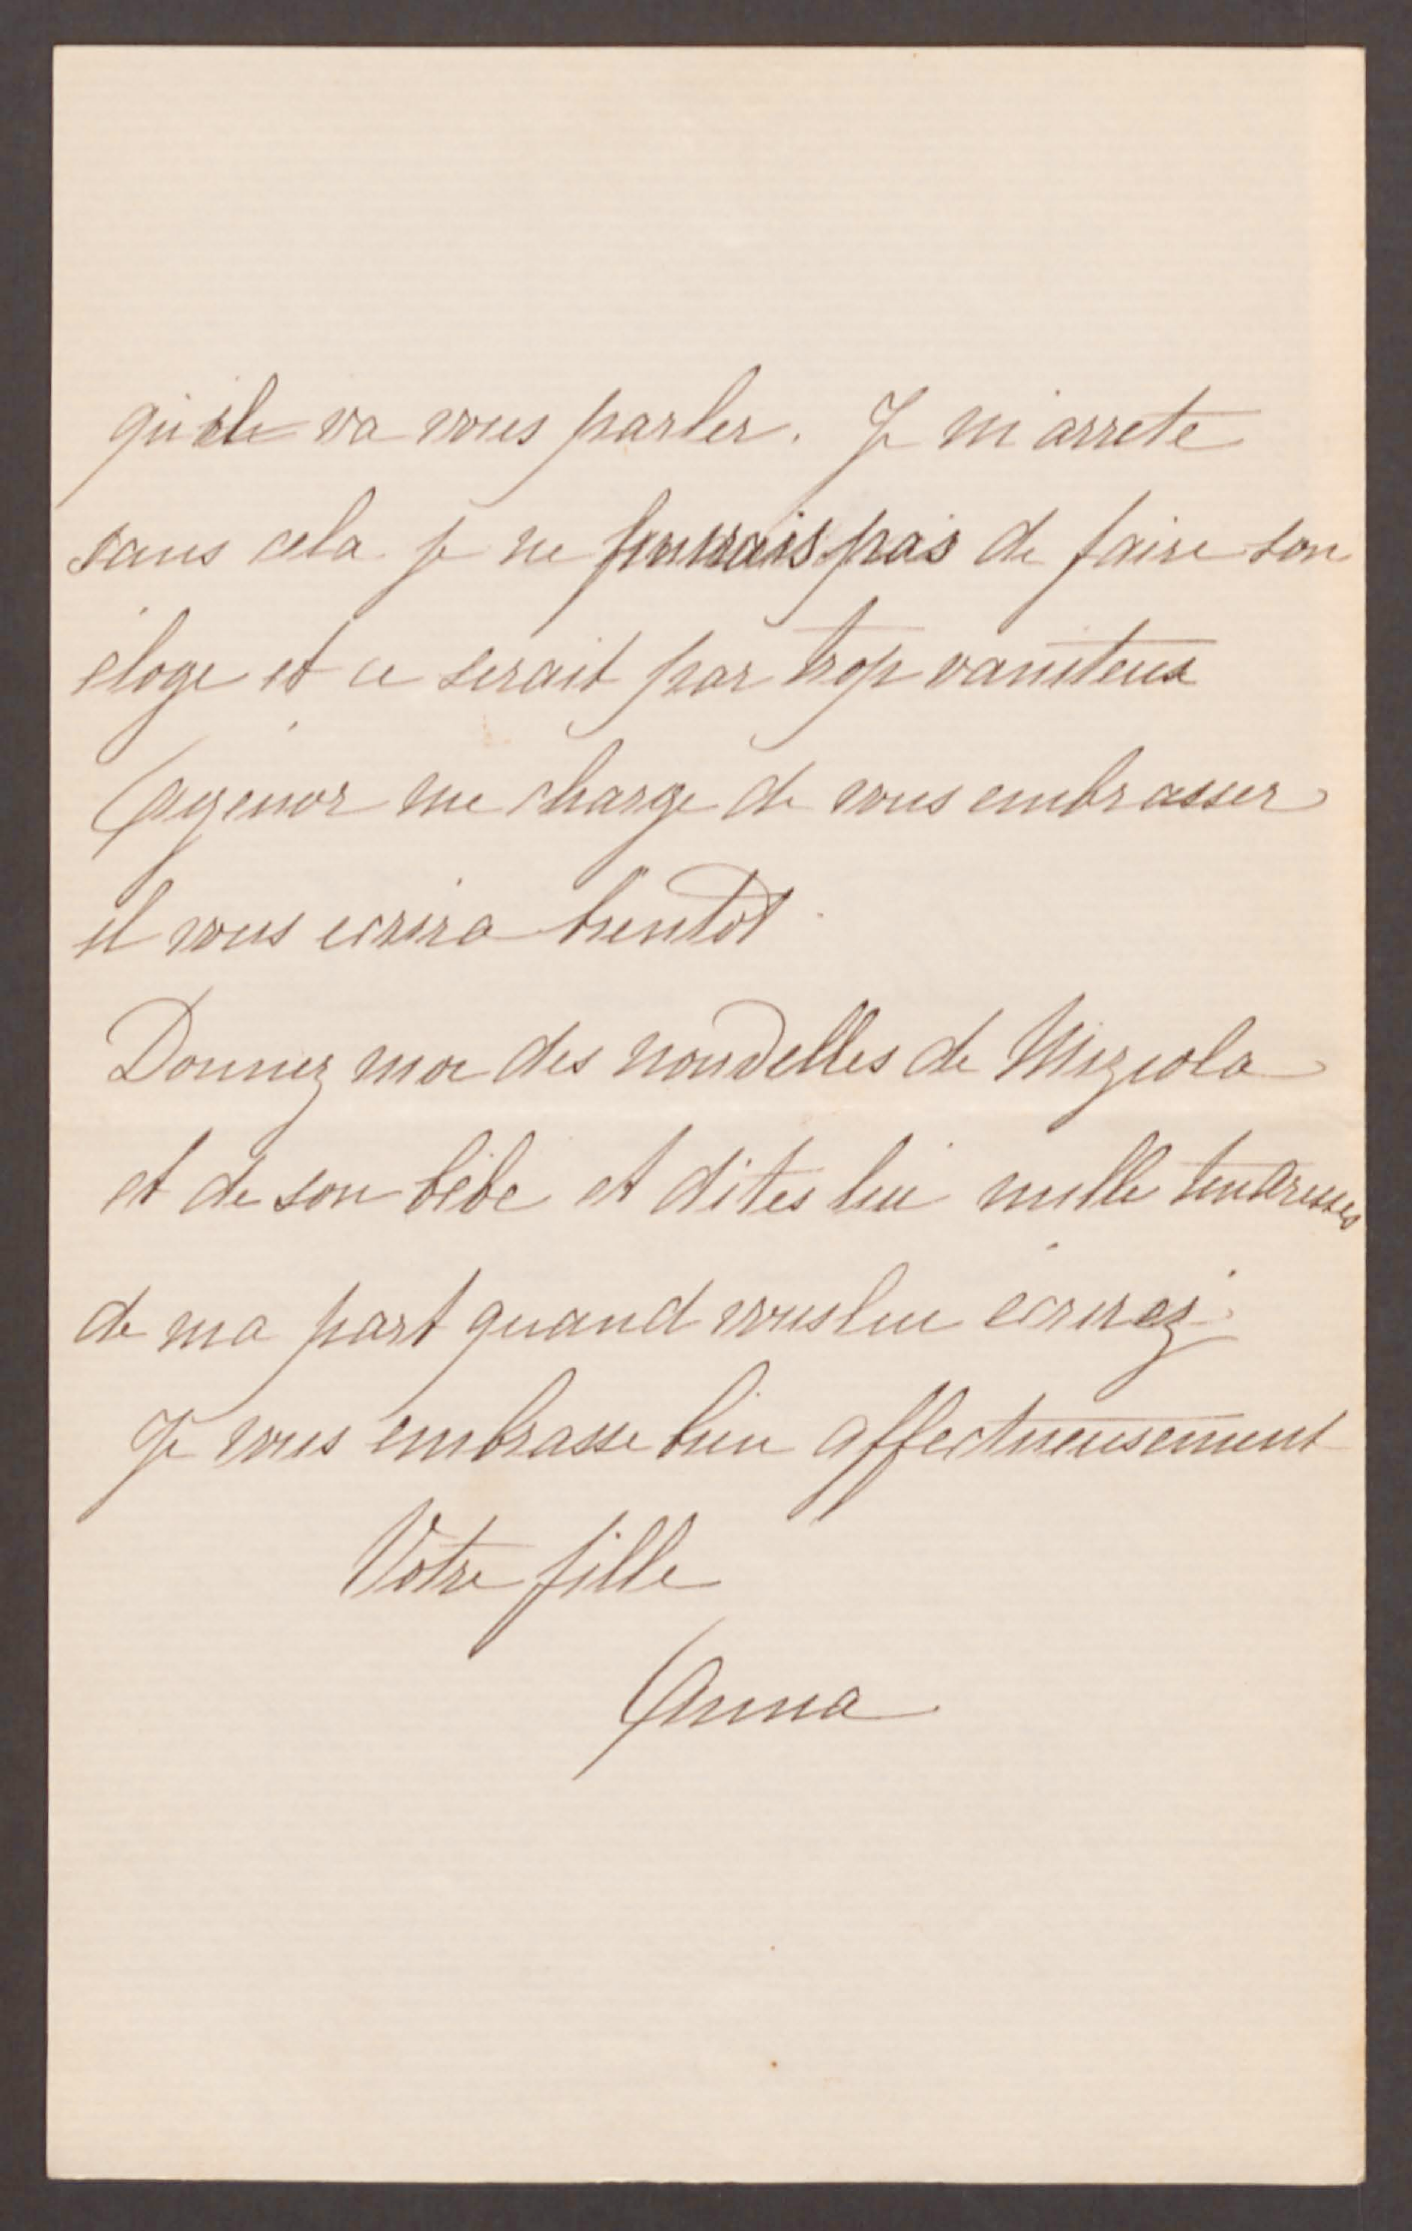 qu'elle va vous parler. Je m'arrete
sans cela je ne finirais pas de faire son
éloge et ce serait par trop vaniteux
Agénor me charge de vous embrasser
il vous ecrira bientôt.
Donnez moi des nouvelles de Miziola
et de son bébé et dites lui mille tendresses
de ma part quand vous lui écrirez.
Je vous embrasse bien affectueusement
Votre fille
Anna